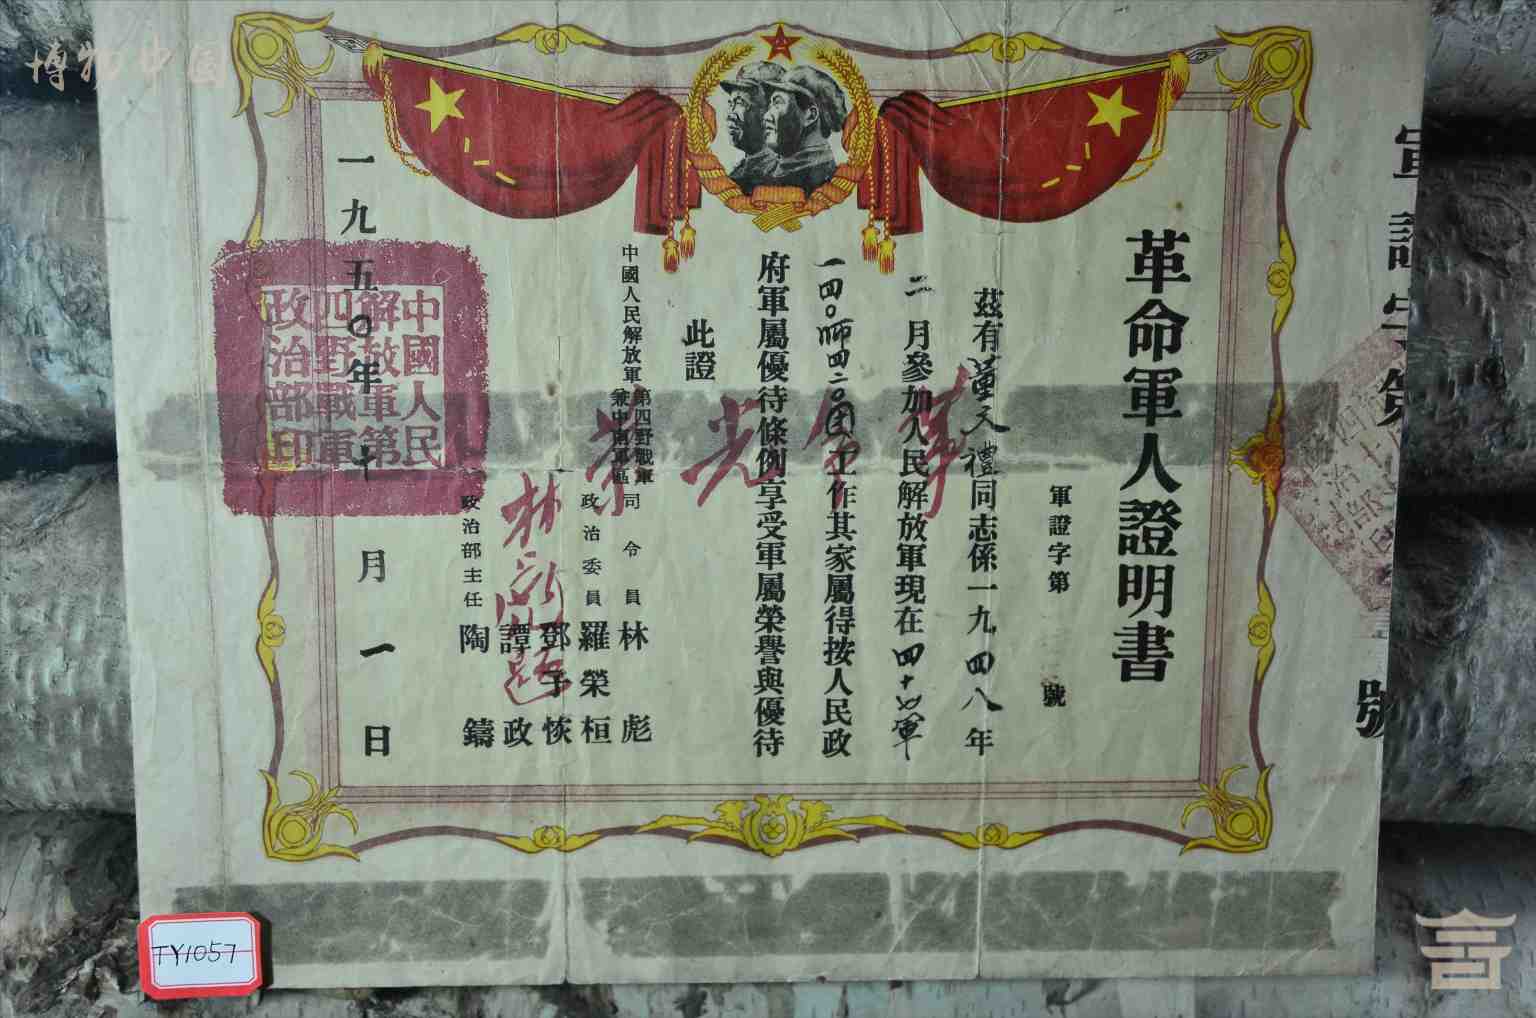 博物中国
革命軍人證明書
軍證字第 號
茲有董文禮同志係一九四八年
二月參加人民解放軍現在四十七軍
一四〇師四二〇團工作其家屬得按人民政
府軍屬優待條例享受軍屬榮譽與優待
此證
革命光榮
中國人民解放軍第四野戰軍兼中南軍區司令員林彪
政治委員羅榮桓
鄧子恢
譚政
政治部主任陶鑄
一九五〇年十月一日
中國人民
解放軍第
四野戰軍
政治部印
號
TY1057